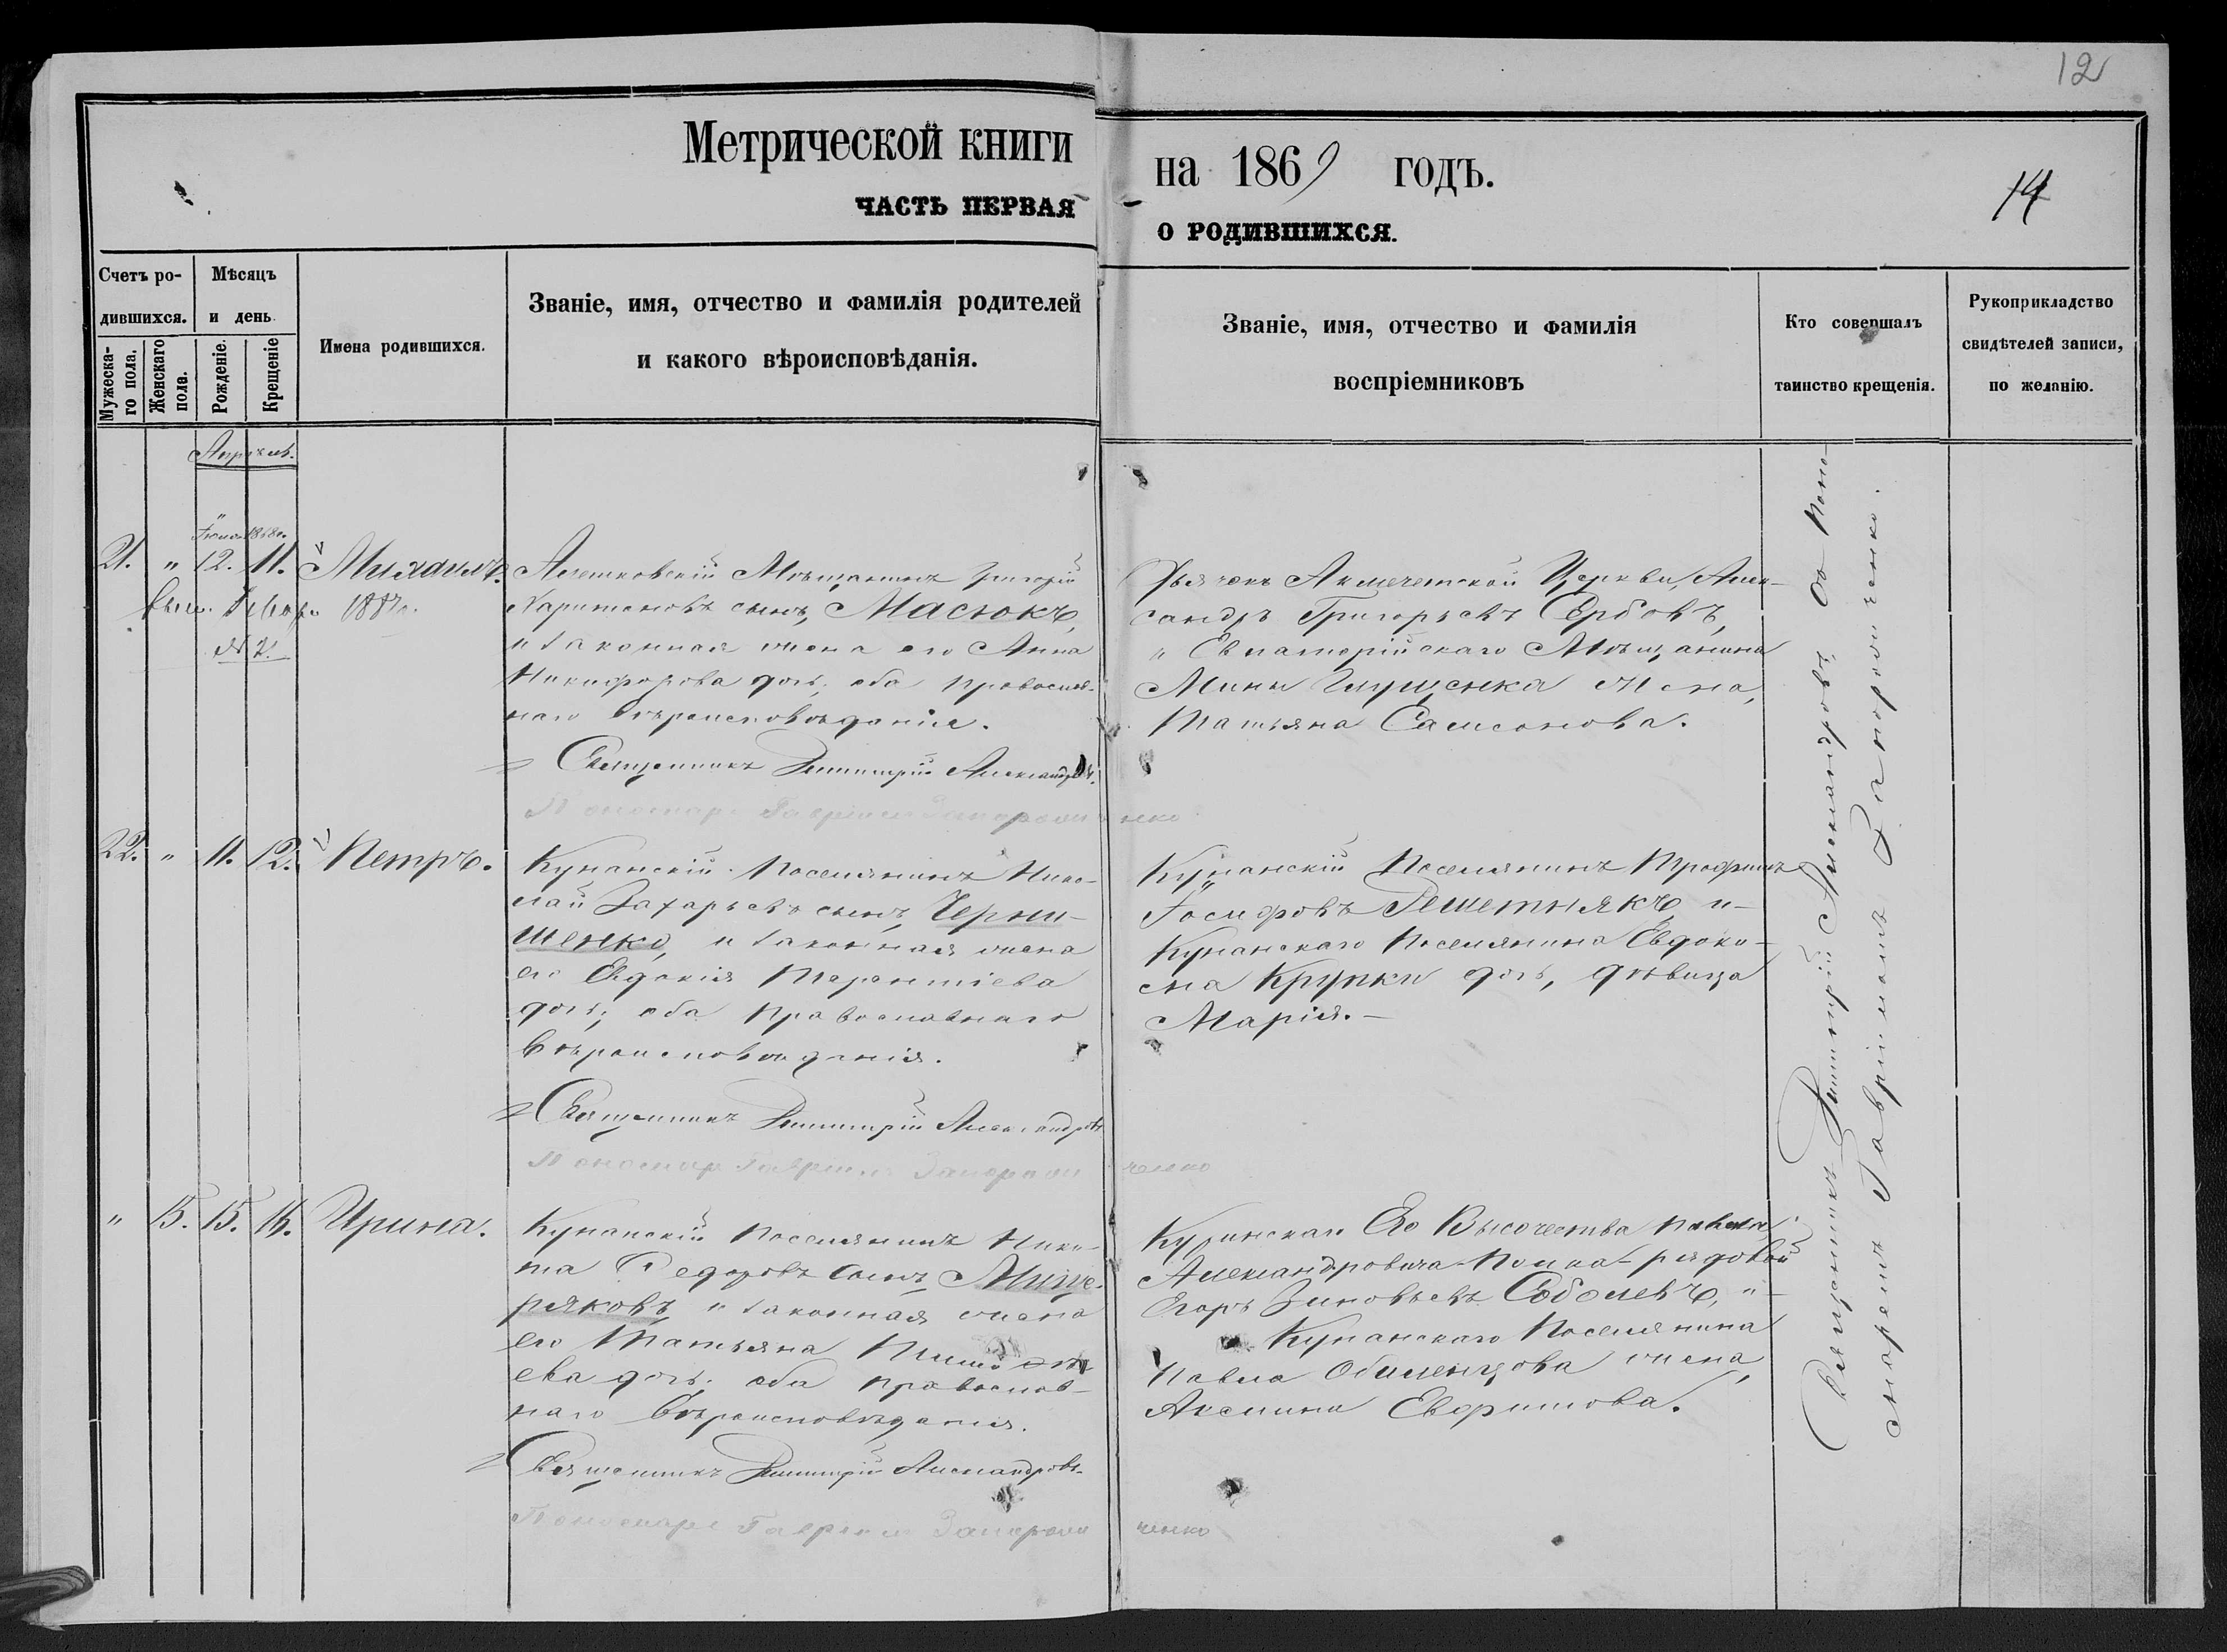 12
Метрической книги на 1869 годъ.
14
ЧАСТЬ ПЕРВАЯ О РОДИВШИХСЯ.
Счетъ родившихся.
Мужескаго пола.
Женскаго пола.
Мѣсяцъ и день
Рожденіе.
Крещеніе
Имена родившихся.
Званіе, имя, отчество и фамилія родителей
и какого вѣроисповѣданія.
Званіе, имя, отчество и фамилія
воспріемниковъ
Кто совершалъ
таинство крещенія.
Рукоприкладство
свидѣтелей записи,
по желанію.
Апрѣль.
1868
21. " 12. 11. Михаилъ.
№ 2.
Алешковскій Мѣщанинъ Григорій
Харитоновъ сынъ, Масюкъ,
и законная жена его Анна
Никифорова дочь, оба православ-
наго вѣроисповѣданія.
Священникъ Димитрій Александровъ.
Пономарь Гавріилъ Запорожченко
Дьячекъ Акмечетской Церкви, Алек-
сандръ Григорьевъ Сербовъ,
и Евпаторійскаго Мѣщанина
Мины Глущенка жена,
Татьяна Самсонова.
22. " 11. 12. Петръ.
Кунанскій Поселянинъ Нико-
лай Захарьевъ сынъ, Черни-
шенко, и законная жена
его Евдокія Терентіева
дочь; оба православнаго
вѣроисповѣданія.
Священникъ Димитрій Александровъ
Пономарь Гавріилъ Запорожченко
Кунанскій Поселянинъ Трофимъ
Іосифовъ Решетнякъ, и-
Кунанскаго Поселянина Евдоки-
ма Крупки дочь, дѣвица
Марія.-
" 15. 15. 16. Ирина.
Кунанскій Поселянинъ Ники-
та Федоровъ сынъ, Мище-
ряковъ, и законная жена
его Татьяна
ева дочь; оба православ-
наго вѣроисповѣданія.
Священникъ Димитрій Александровъ.
Пономарь Гавріилъ Запорожченко
Его Высочества Павла
Александровича Полка рядовой
Егоръ Зиновьевъ Соболевъ, и-
Кунанскаго Поселянина
Павла жена,
Аксинія
Священникъ Димитрій Александровъ со Поно-
маремъ Гавріиломъ Запорожченко.